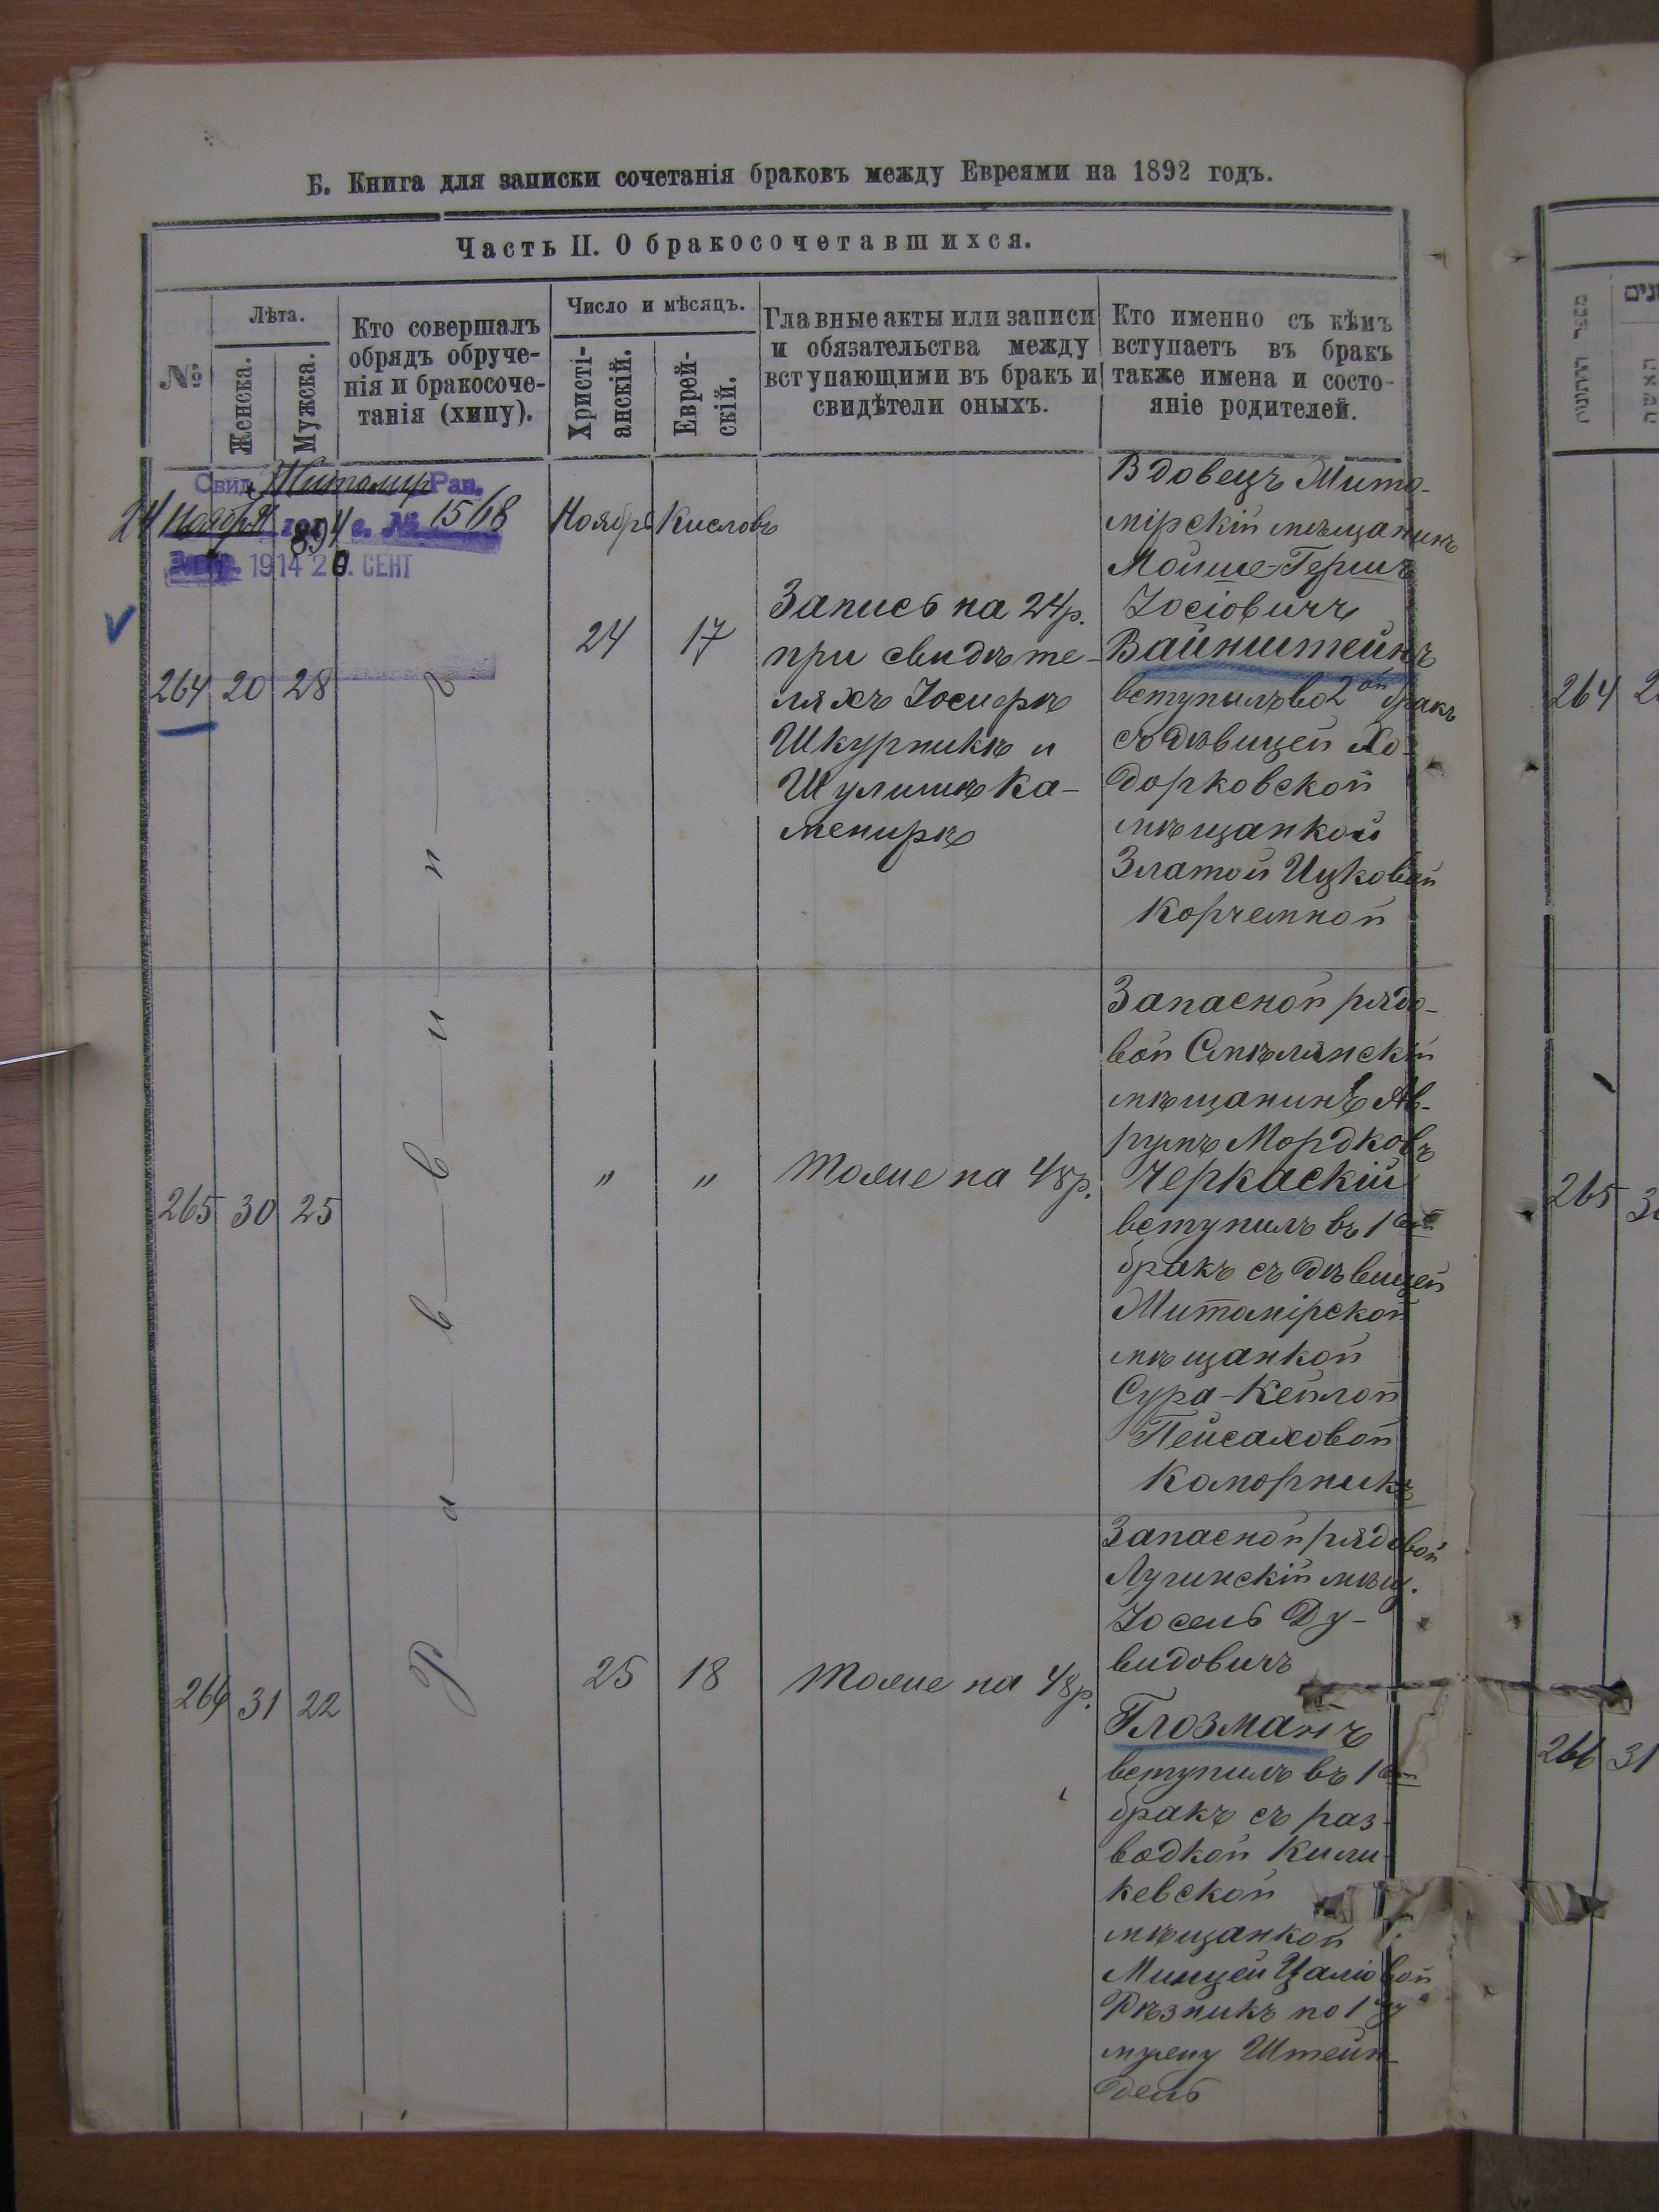 Б. Книга для записки сочетанія браковъ между Евреями на 1892 годъ.
Часть II. О бракосочетавшихся.
№
Лѣта.
Женска.
Мужска.
Кто совершалъ
обрядъ обруче-
нія и бракосоче-
танія (хипу).
Число и мѣсяцъ.
Христі-
анскій.
Еврей-
скій.
Главные акты или записи
и обязательства между
вступающими въ бракъ и
свидѣтели оныхъ.
Кто именно съ кѣмъ
вступаетъ въ бракъ
также имена и состо-
яніе родителей.
Свид. Житомир Рав.
24 Ноября 1894 г. № 1568
1914 20. СЕНТ
Ноябрь
Кисловъ
264
20
28
24
17
Запись на 24 р.
при свидѣте-
ляхъ Иосперѣ
Шкурникѣ и
Шулимѣ Ка-
менирѣ
Вдовецъ Жито-
мірскій мѣщанинъ
Мойше-Гершъ
Іосіовичъ
Вайнштейнъ
вступилъ во 2ой бракъ
съ дѣвицей Хо-
дорковской
мѣщанкой
Златой Ицковой
Корчемной
Раввинъ
265
30
25
"
"
Тоже на 48 р.
Запасной рядо-
вой Смѣлянскій
мѣщанинъ Ав-
румъ Мордковъ
Черкаскій
вступилъ въ 1ый
бракъ съ дѣвицей
Житомірской
мѣщанкой
Сура-Кейлой
Пейсаховой
Каморникъ
266
31
22
25
18
Тоже на 48 р.
Запасной рядовой
Лугинскій мѣщ.
Іосель Ду-
видовичъ
Глозманъ
вступилъ въ 1ый
бракъ съ раз-
водкой Кили-
кевской
мѣщанкой
Минцей Цаліовой
Рѣзникъ по 1му
мужу Штейн-
дель
מספר החתונות
האשה
264
265
266
31